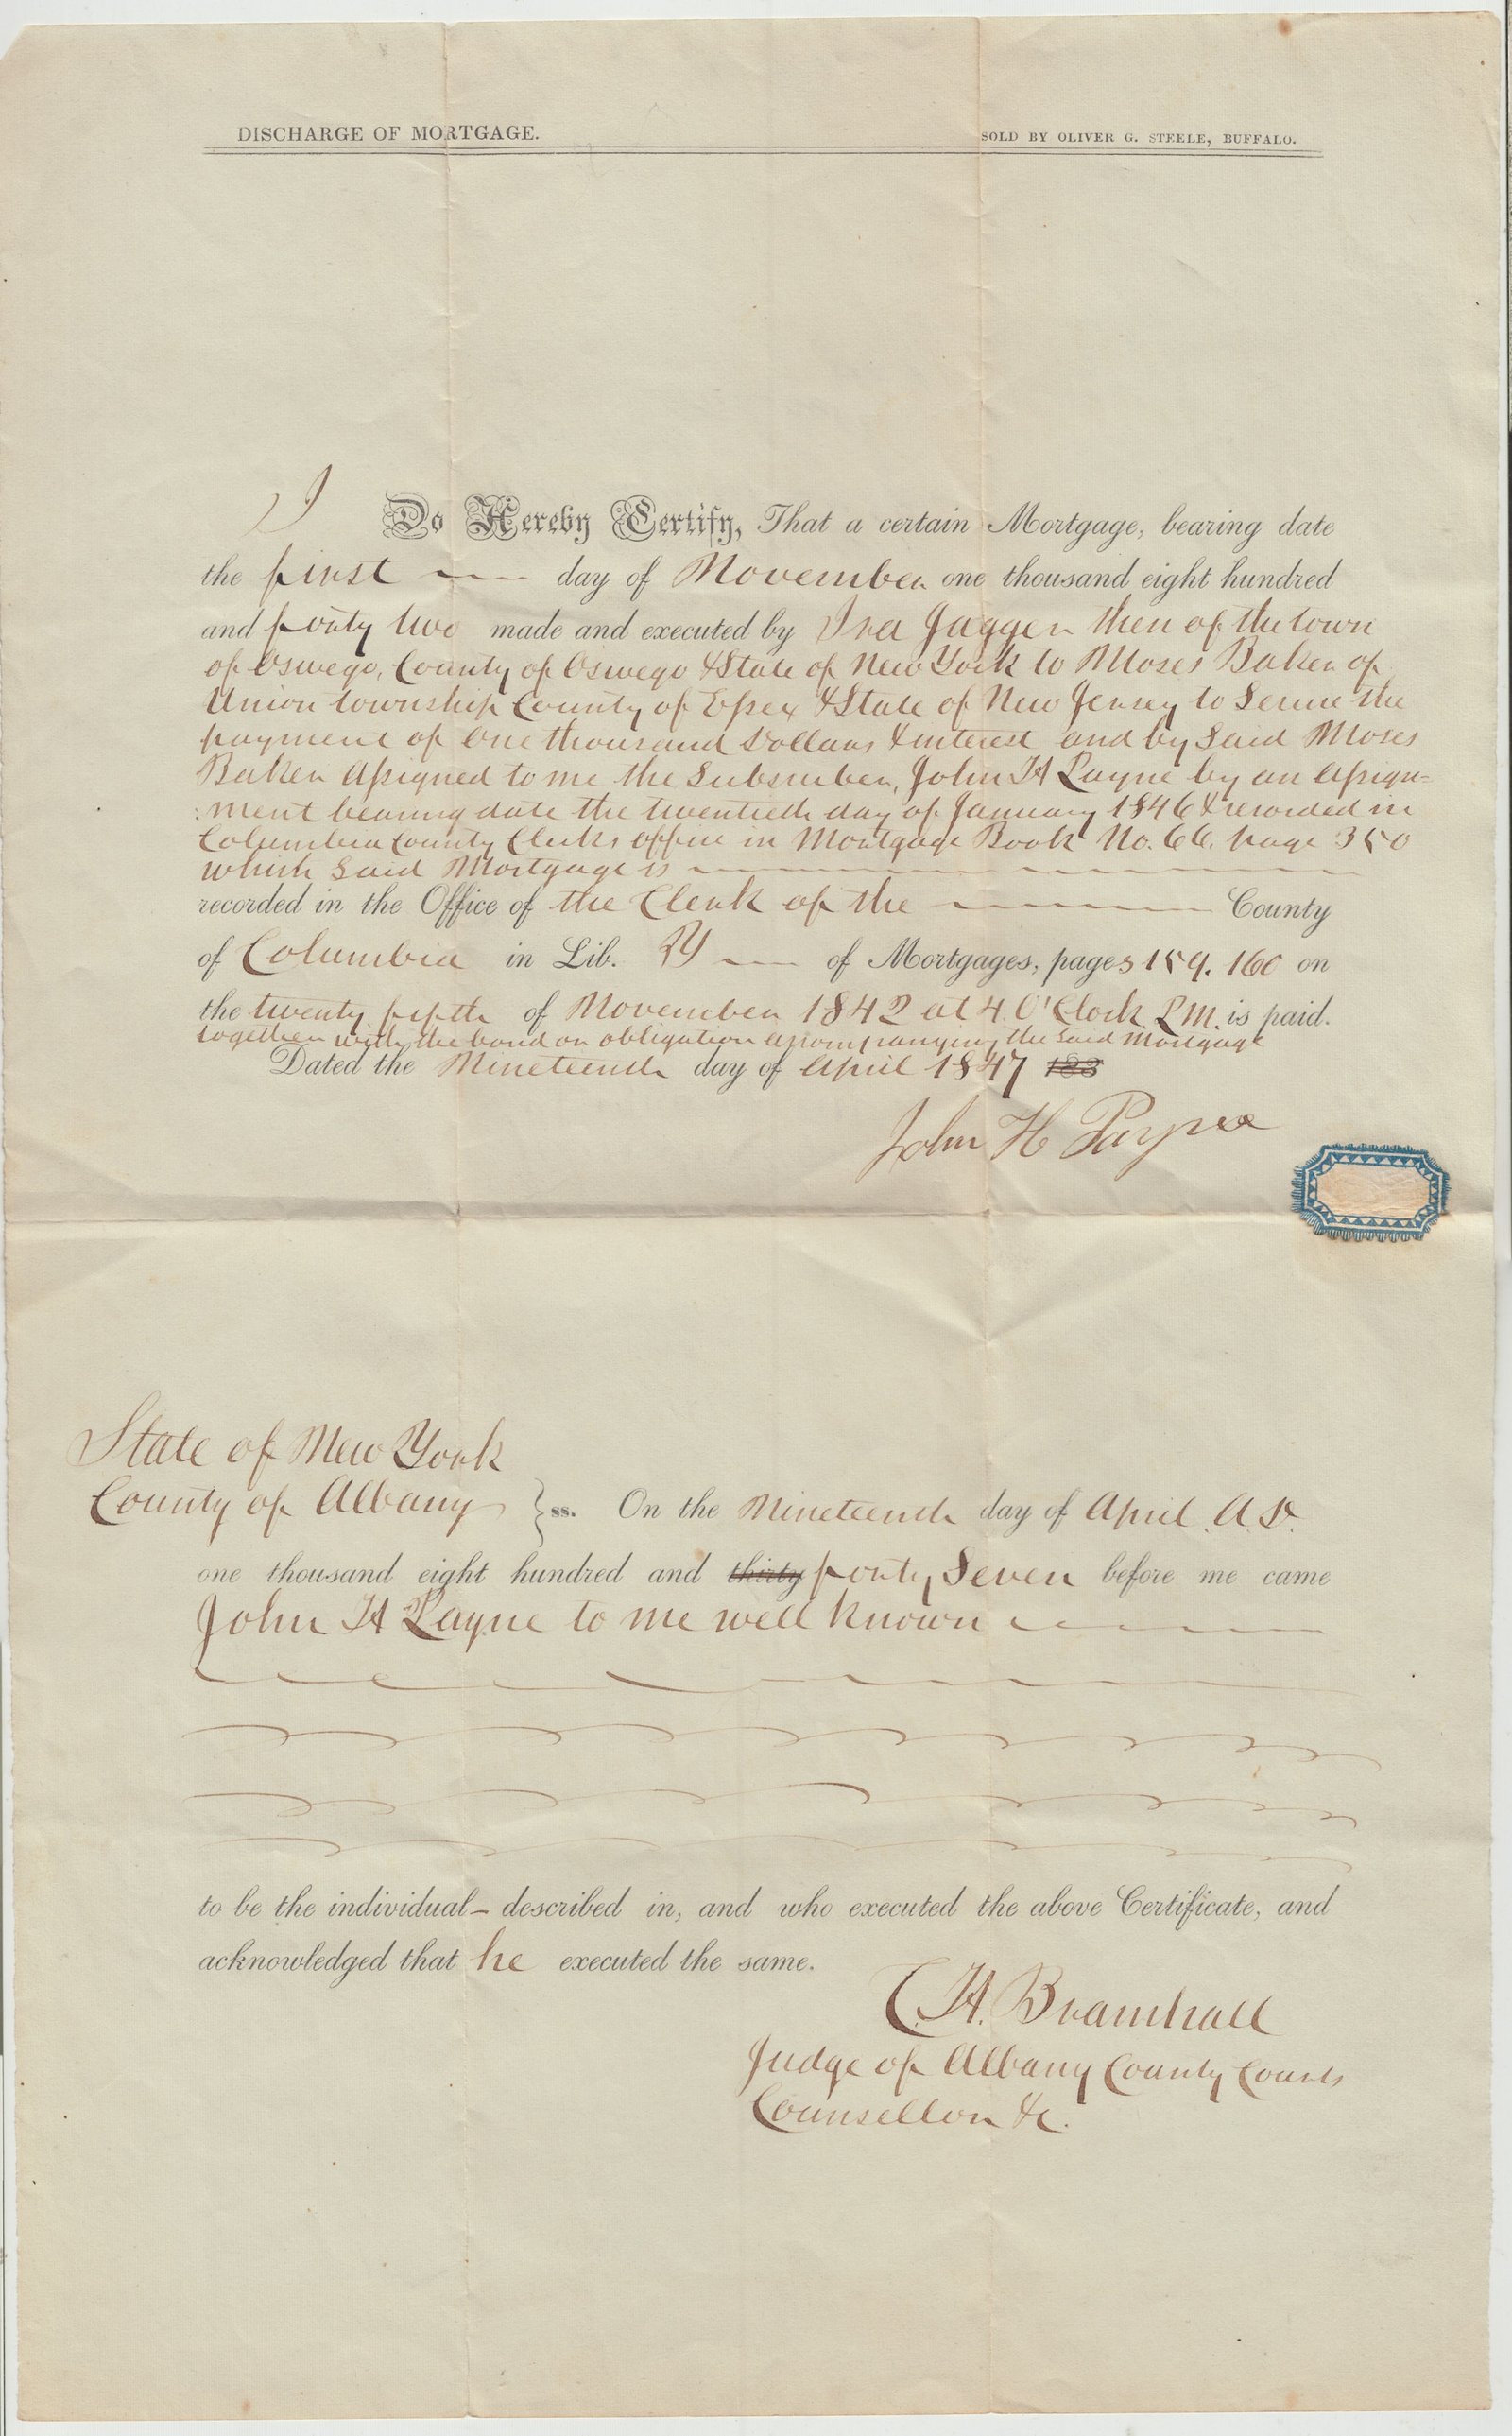 DISCHARGE OF MORTGAGE.
SOLD BY OLIVER G. STEELE, BUFFALO.
I Do Hereby Certify, That a certain Mortgage, bearing date
the first day of November one thousand eight hundred
and forty two made and executed by Ira Jagger then of the town
of Oswego, County of Oswego & State of New York to Moses Baker of
Union township County of Essex & State of New Jersey to Secure the
payment of One thousand Dollars & interest and by Said Moses
Baker Assigned to me the Subscriber, John H Payne by an Assign=
:ment bearing date the twentieth day of January 1846 & recorded in
Columbia County Clerks office in Mortgage Book No. 66. page 350
which Said Mortgage is
recorded in the Office of the Clerk of the County
of Columbia in Lib. Y of Mortgages, pages 159. 160 on
the twenty fifth of November 1842 at 4. O'Clock P.M. is paid.
together with the bond or obligation accompanying the Said Mortgage
Dated the Nineteenth day of April 1847 183
John H Payne
State of New York
County of Albany } ss. On the Nineteenth day of April. A.D.
one thousand eight hundred and thirty forty Seven before me came
John H Payne to me well known
to be the individual described in, and who executed the above Certificate, and
acknowledged that he executed the same.
C. H. Bramhall
Judge of Albany County Courts
Counsellor &c.